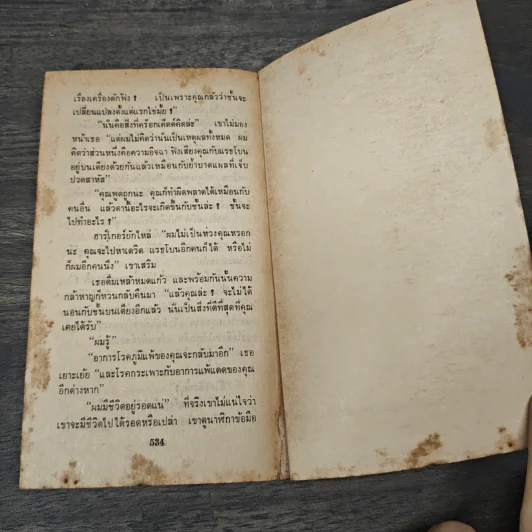 เรื่องเครื่องดักฟัง ? เป็นเพราะคุณกลัวว่าชั้นจะ
เปลี่ยนแปลงตั้งแต่แรกใช่มั้ย ?”
“นั่นคือสิ่งที่คร็อกเค็ตต์คิดล่ะ” เขาไม่มอง
หน้าเธอ “แต่ผมไม่คิดว่านั่นเป็นเหตุผลทั้งหมด ผม
คิดว่าส่วนหนึ่งคือความอิจฉา ฟังเสียงคุณกับแรธโบน
อยู่บนเตียงด้วยกันแล้วเหมือนกับย้ำบาดแผลที่เจ็บ
ปวดสาหัส”
“คุณพูดถูกนะ คุณก็ทำผิดพลาดได้เหมือนกับ
คนอื่น แล้วคานี้อะไรจะเกิดขึ้นกับชั้นล่ะ ? ชั้นจะ
ไปทำอะไร ?”
ฮาร์ไกอร์ยักไหล่ “ผมไม่เป็นห่วงคุณหรอก
น่ะ คุณจะไปหาเดวิด แรธโบนอีกคนก็ได้ หรือไม่
ก็ผมอีกคนนึง” เขาเสริม
เธอดื่มเหล้าหมดแก้ว และพร้อมกันนั้นความ
กล้าหาญก็หวนกลับคืนมา “แล้วคุณล่ะ ? จะไม่ได้
นอนกับชั้นบนเตียงอีกแล้ว นั่นเป็นสิ่งที่ดีที่สุดที่คุณ
เคยได้รับ”
“ผมรู้”
“อาการโรคภูมิแพ้ของคุณจะกลับมาอีก” เธอ
เยาะเย้ย “และโรคกระเพาะกับอาการแพ้แดดของคุณ
อีกต่างหาก”
“ผมมีชีวิตอยู่รอดแน่” ที่จริงเขาไม่แน่ใจว่า
เขาจะมีชีวิตไปได้รอดหรือเปล่า เขาดูนาฬิกาข้อมือ
534